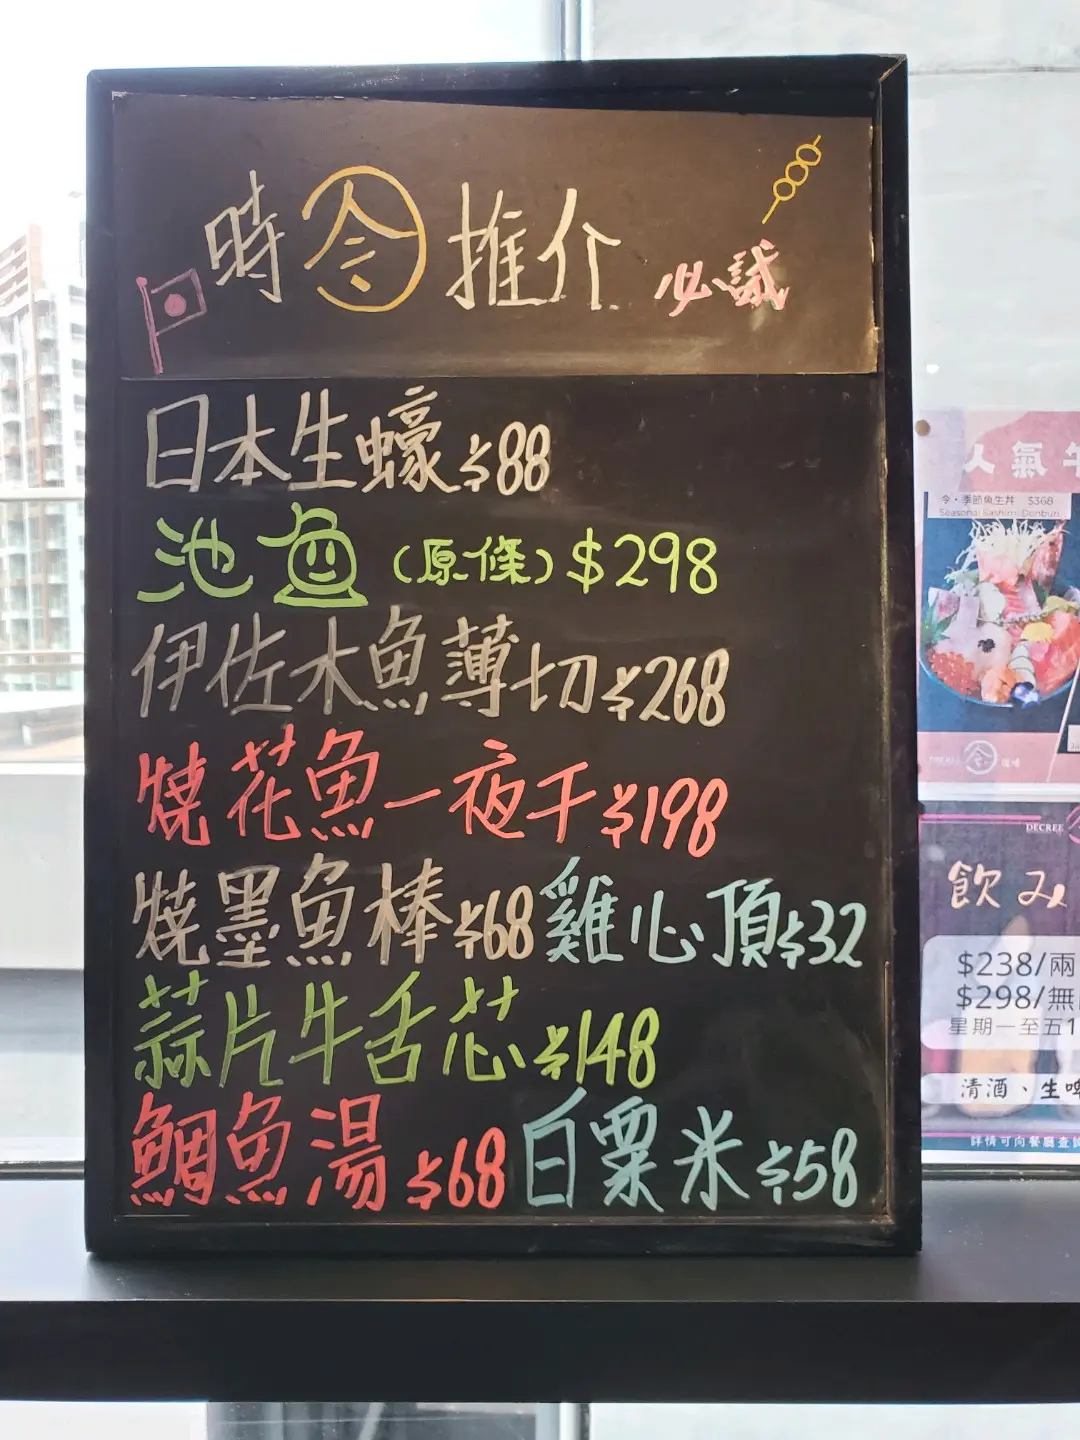 時令推介 必試
日本生蠔 $88
池魚 (原條) $298
伊佐木魚薄切 $268
燒花魚一夜干 $198
燒墨魚棒 $68 雞心頂 $32
蒜片牛舌芯 $148
鯛魚湯 $68 白粟米 $58
人氣
令・季節魚生丼 $368
Seasonal Sashimi Donburi
DECREE
飲み
$238/兩
$298/無
星期一至五
清酒、生啤
詳情可向餐廳查詢